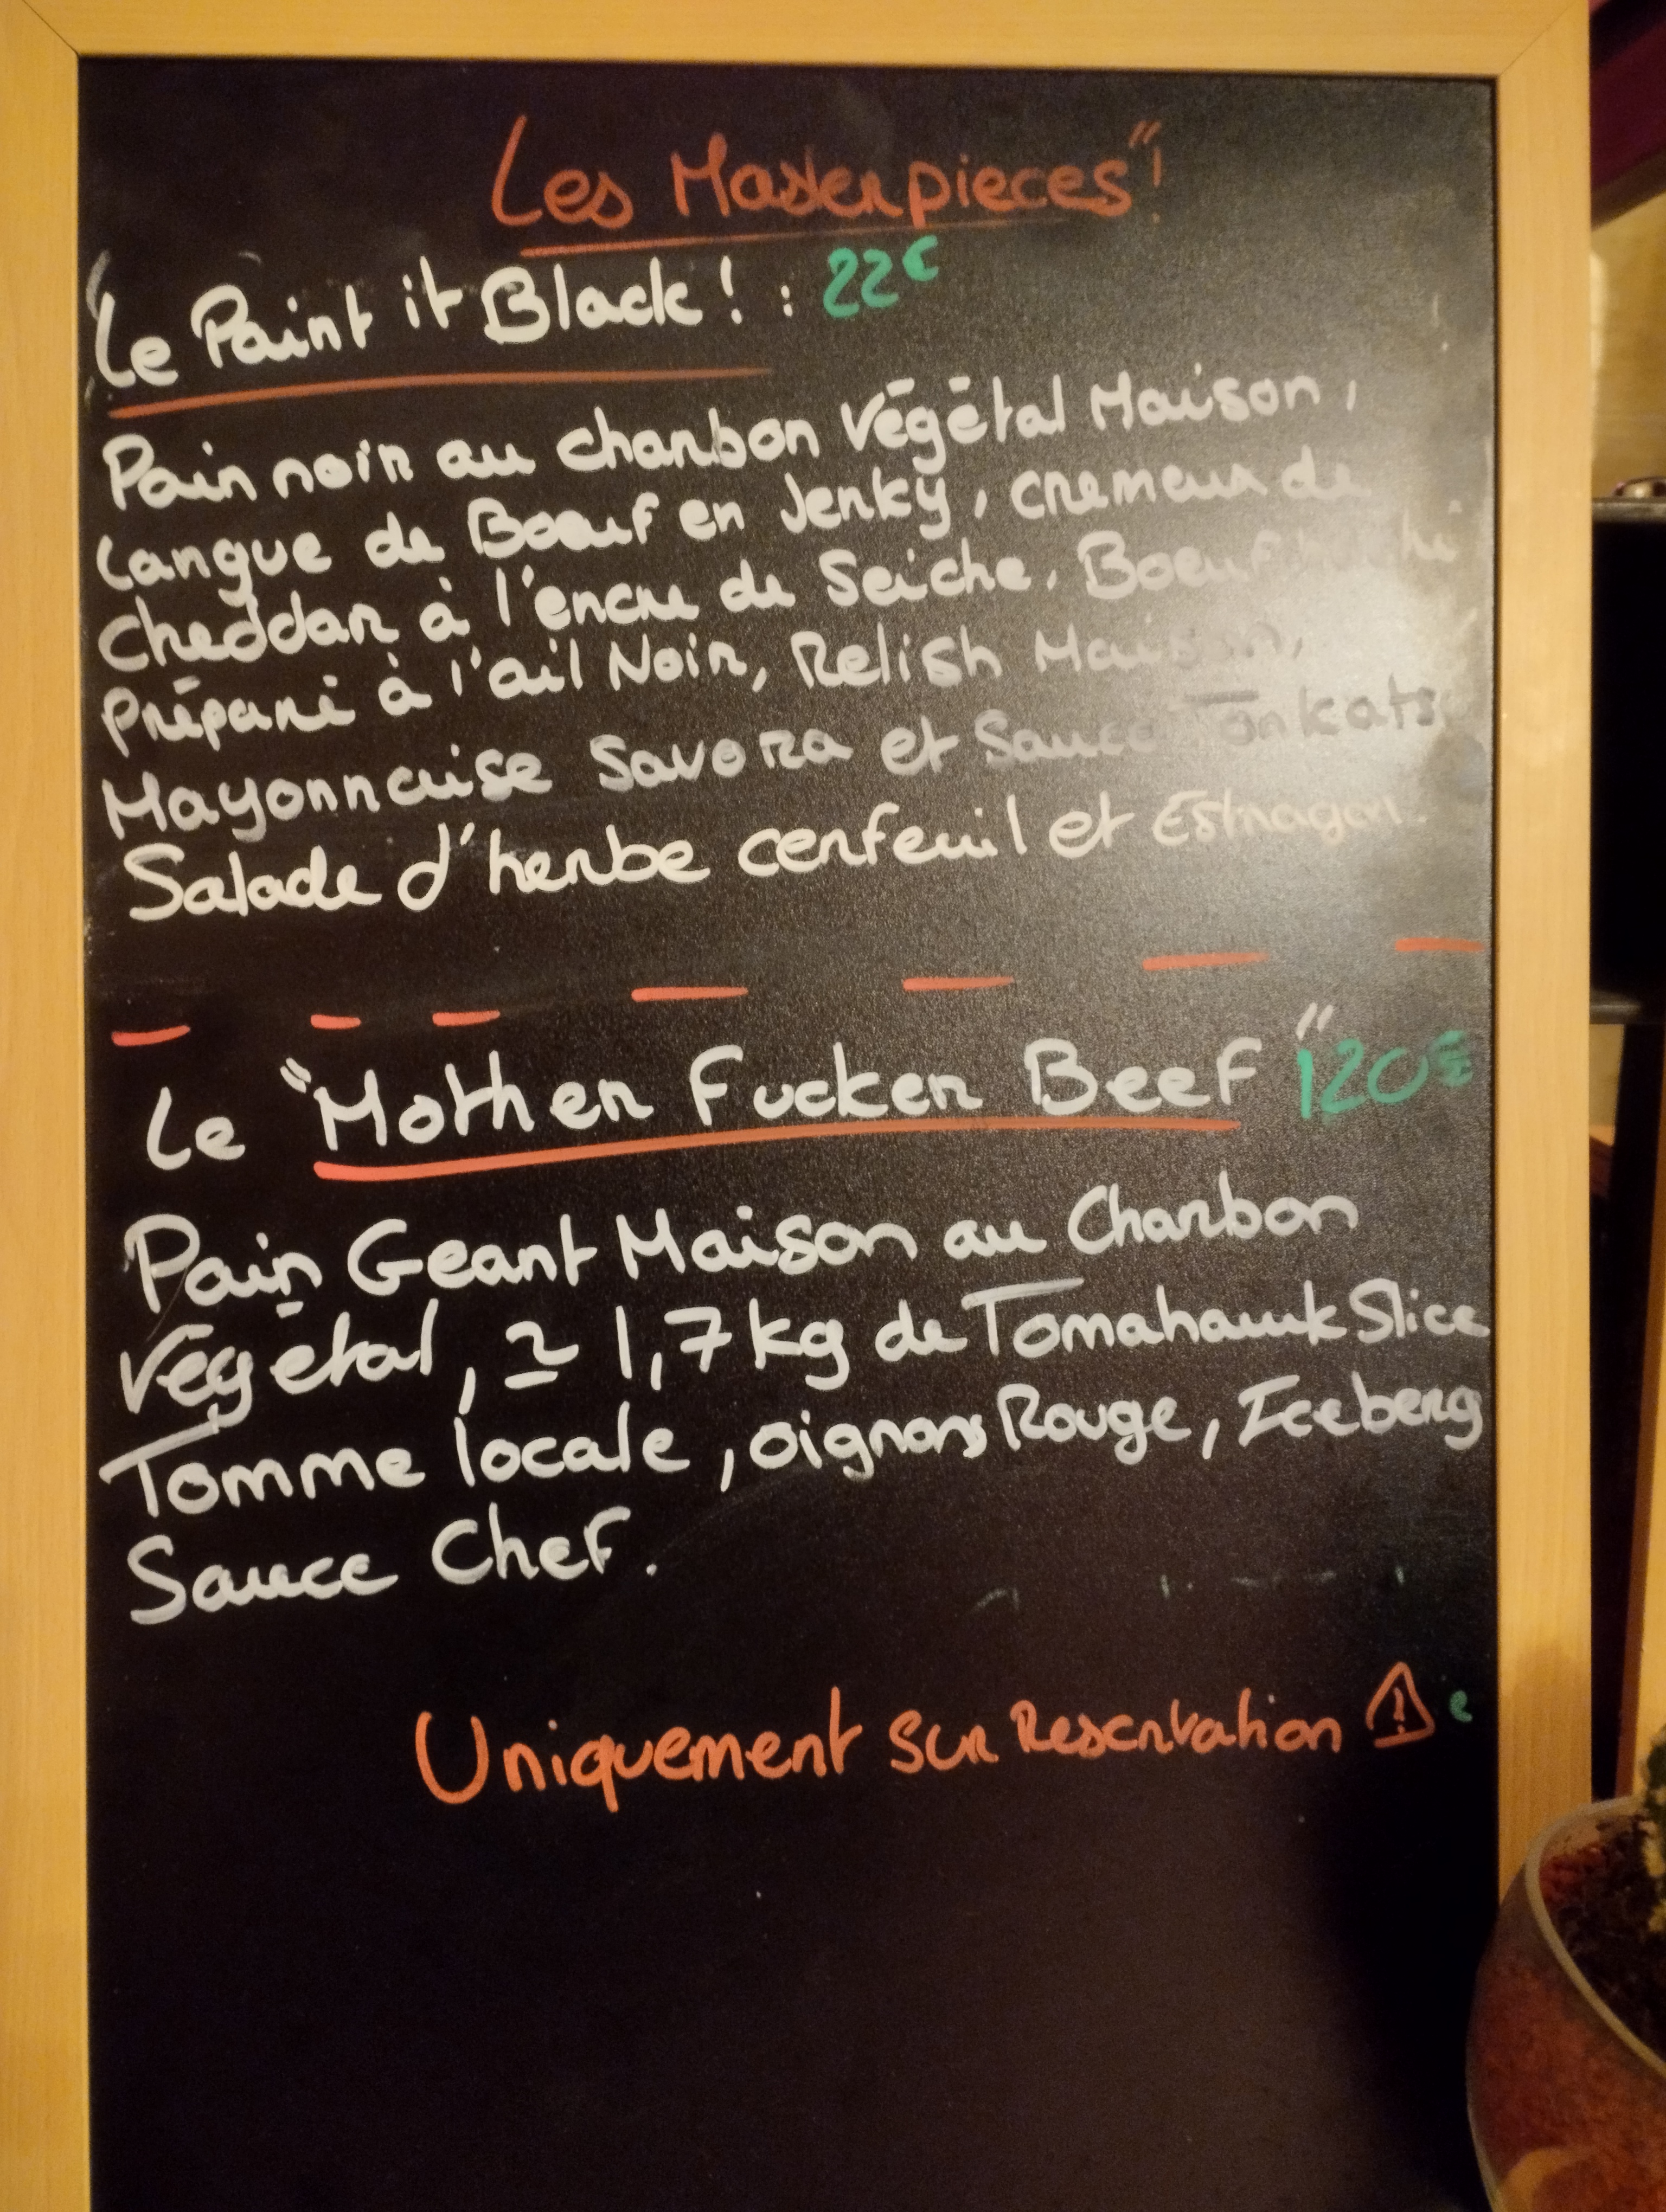 Les Masterpieces"!
"Le Paint it Black! : 22€
Pain noir au charbon Végétal Maison,
Langue de Boeuf en Jerky, cremeux de
Cheddar à l'encre de Seiche. Boeuf
Préparé à l'ail Noir, Relish Maison,
Mayonnaise Savora et Sauce Tonkatsu
Salade d'herbe cerfeuil et Estragon.
Le "Mother Fucker Beef" 120€
Pain Geant Maison au Charbon
Végétal, ≃ 1,7kg de Tomahawk Slice
Tomme locale, oignons Rouge, Iceberg
Sauce Chef.
Uniquement sur Reservation ⚠